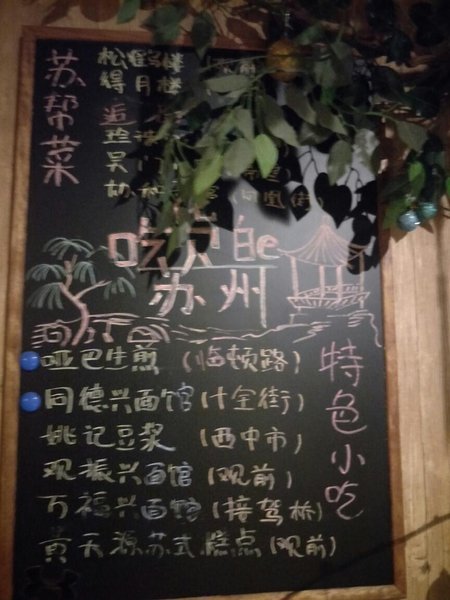 苏帮菜
松鹤楼
得月楼
吴门
(凤凰街)
吃货的
苏州
特色小吃
哑巴生煎 (临顿路)
同德兴面馆 (十全街)
姚记豆浆 (西中市)
观振兴面馆 (观前)
万福兴面馆 (接驾桥)
黄天源苏式糕点 (观前)